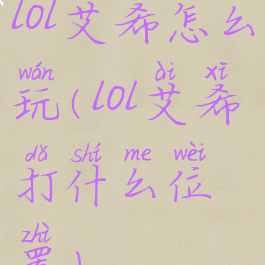 lol艾希怎么
wán ài xī
玩(lol艾希
dǎ shí me wèi
打什么位
zhì
置)